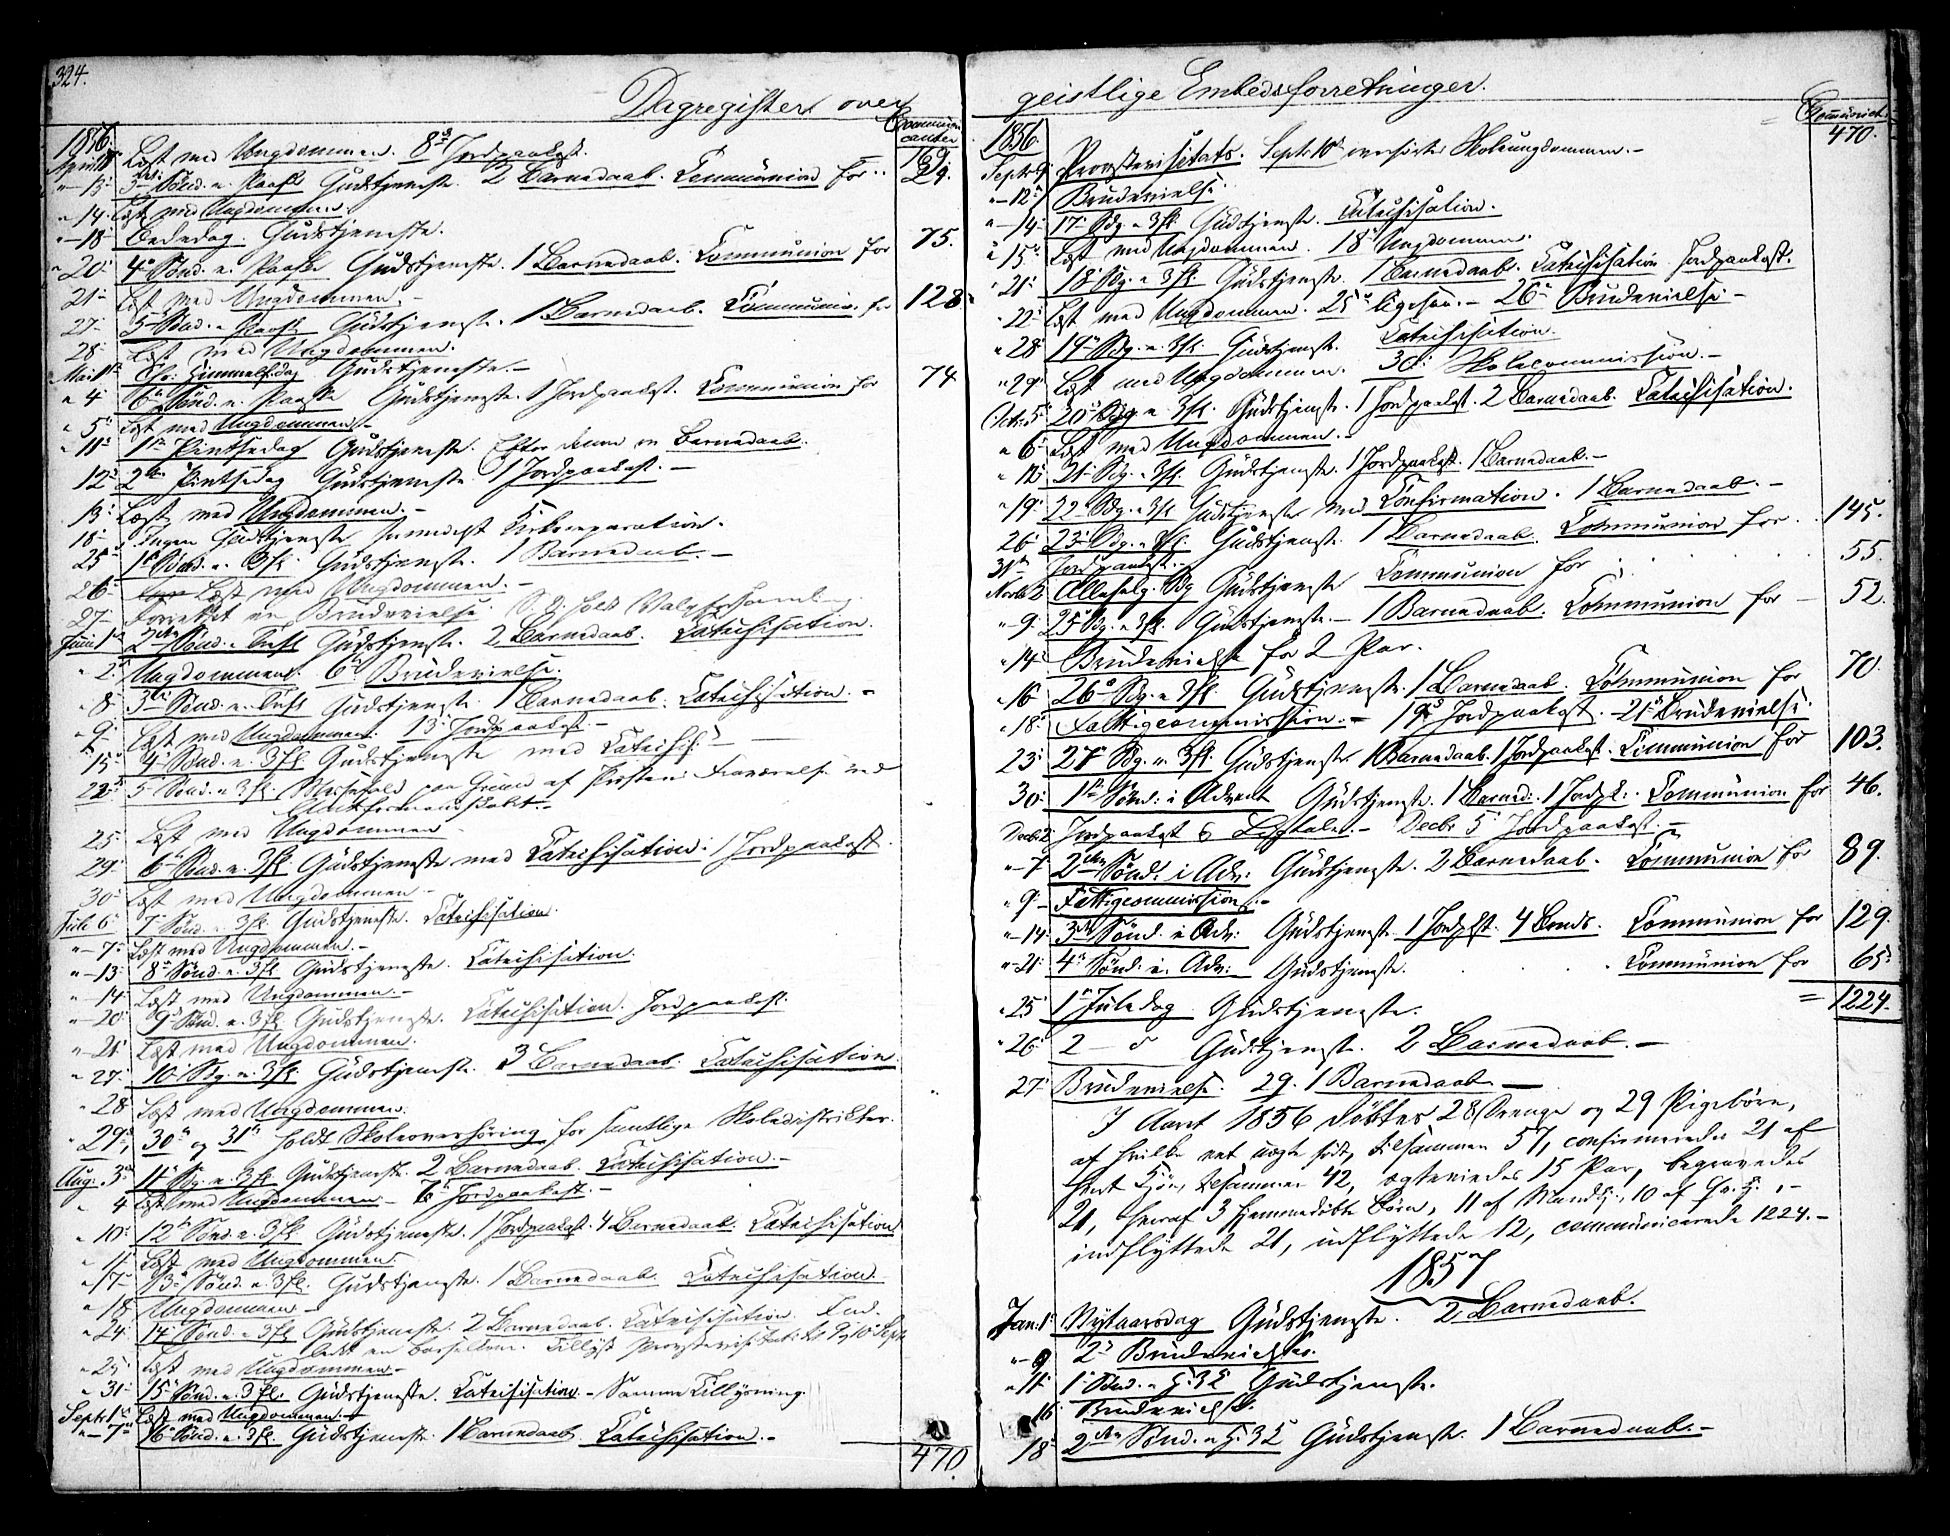 324.
Dagregister over
Communi-
canter
1856.
April 7 Læst med Ungdommen. 8de Jordpaakast. 169.
"-13. 3die Sønd. e. Paaske Gudstjeneste. 2 Barnedaab. Communion for .. 24.
"14. Læst med Ungdommen.
"-18 Bededag. Gudstjeneste.
"20. 4de Sønd. e. Paaske Gudstjeneste. 1 Barnedaab. Communion for 75.
21. Læst med Ungdommen.-
27. 5te Sønd. e. Paaske Gudstjeneste. 1 Barnedaab. Communion for 128.
28. Læst med Ungdommen.
Mai 1ste Chr. Himmelf.dag Gudstjeneste.-
"4. 6te Sønd. e. Paaske Gudstjeneste. 1 Jordpaakast. Communion for 74
"5. Læst med Ungdommen.
"11te 1ste Pintsedag Gudstjeneste. Efter denne en Barnedaab.
12. 2den Pintsedag Gudstjeneste 1 Jordpaakast.-
13. Læst med Ungdommen.-
18. Ingen Gudstjeneste Kirkereparation.
25. 1ste Sønd. e. Trf. Gudstjeneste. 1 Barnedaab.-
26. Læst med Ungdommen.-
27. Forrettet en Brudevielse. holdt
Juni 1ste 2den Sønd. e. Trf. Gudstjeneste. 2 Barnedaab. Catechisation.
"2. Ungdommen. 6te Brudevielse.
"8. 3die Sønd. e. Trf. Gudstjeneste. 1 Barnedaab. Catechisation.-
"9. Læst med Ungdommen. 13de Jordpaakast.-
"15. 4de Sønd. e. Trf. Gudstjeneste med Catechis.-
22. 5te Sønd. e. Trf. Messefald paa Grund af Præstens Fraværelse ved
25. Læst med Ungdommen
29. 6te Sønd. e. Trf. Gudstjeneste med Catechisation. 1 Jordpaakast.
30. Læst med Ungdommen-
Juli 6. 7de Sønd. e. Trf. Gudstjeneste. Catechisation.
"-7. Læst med Ungdommen.-
"-13. 8de Sønd. e. Trf. Gudstjeneste. Catechisation.
"-14. Læst med Ungdommen.-
"-20. 9de Sønd. e. Trf. Gudstjeneste. Catechisation. Jordpaakast.
"-21. Læst med Ungdommen.
"27. 10de Sdg. e. Trf. Gudstjeneste. 3 Barnedaab. Catechisation.
"28. Læst med Ungdommen.
"29, 30te og 31te holdt Skoleoverhøring for samtlige Skoledistrikter.
Aug. 3die 11te Sdg. e. Trf. Gudstjeneste. 2 Barnedaab. Catechisation.-
"4 Læst med Ungdommen - 7de Jordpaakast.-
"10. 12te Sønd. e. Trf. Gudstjeneste. 1 Jordpaakast. 4 Barnedaab. Catechisation
"11. Læst med Ungdommen.
"17. 13de Sønd. e. Trf. Gudstjeneste. 1 Barnedaab. Catechisation.
"18 Ungdommen-
"24. 14de Sønd. e. Trf. Gudstjeneste. 2 Barnedaab. Catechisation. Ind-
ledet en Barselkone. Tillyst Provstevisitats til 9 og 10 Septr
"25. Læst med Ungdommen-
"31. 15de Sønd. e. Trf. Gudstjeneste. Catechisation.- Samme Tillysning.
Septr 1ste Læst med Ungdommen.-
"-7de 16de Sønd. e. Trf. Gudstjeneste. 1 Barnedaab. Catechisation.-
470.
geistlige Embedsforretninger.
Communicant.
470.
1856.
Septr 9. Provstevisitats. Septr 10de overhørtes Skoleungdommen.-
"-12. Brudevielse.
"-14. 17de Sdg. e. Trf. Gudstjeneste. Catechisation.
"15. Læst med Ungdommen. 18de Ungdommen.
"21. 18de Sdg. e. Trf. Gudstjeneste. 1 Barnedaab. Catechisation. Jordpaakast.
"22. Læst med Ungdommen. 25de ligesaa.- 26de Brudevielse-
"28 19de Sdg. e. Trf. Gudstjeneste. Catechisation.
"29. Læst med Ungdommen. 30. Skolecommission.-
Octbr 5. 20de Sdg e. Trf. Gudstjeneste. 1 Jordpaakast. 2 Barnedaab. Catechisation.
"6. Læst med Ungdommen.-
"12. 21de Sdg. e. Trf. Gudstjeneste. 1 Jordpaakast. 1 Barnedaab.-
"19. 22de Sdg. e. Trf. Gudstjeneste med Confirmation. 1 Barnedaab.-
26. 23de Sdg. e. Trf. Gudstjeneste. 1 Barnedaab. Communion for .. 145.
31te Jordpaakast.
Novbr 2 Allehelg. Sdg Gudstjeneste Communion for 55.
"9. 25de Sdg. e. Trf. Gudstjeneste.- 1 Barnedaab. Communion for - 52.
"14. Brudevielse for 2 Par.
"16 26de Sdg. e. Trf. Gudstjeneste. 1 Barnedaab. Communion for 70.
"18. Fattigcommission.- 19de Jordpaakast.- 21de Brudevielse.
23. 27de Sdg. e. Trf. Gudstjeneste 1 Barnedaab. 1 Jordpaakast. Communion for 103.
30. 1ste Sønd. i Advent Gudstjeneste. 1 Barned. 1 Jordpk. Communion for 46.
Decbr 2. Jordpaakast & Ligtale.- Decbr 5. Jordpaakast.-
"-7 2den Sønd. i Adv. Gudstjeneste. 2 Barnedaab. Communion for 89.
"9. Fattigcommission.-
"-14. 3die Sønd. i Adv. Gudstjeneste. 1 Jordpkst. 4 Barnd. Communion for 129.
"-21. 4de Sønd. i. Adv. Gudstjeneste. Communion for 65.
"25. 1ste Juledag Gudstjeneste. = 1224.
"26. 2 - d Gudstjeneste. 2 Barnedaab.-
27. Brudevielse. 29. 1 Barnedaab -
I Aaret 1856 døbtes 28 Drenge og 29 Pigebørn,
af hvilke eet uægte født, tilsammen 57, confirmerede 21 af
hvert Kjøn, tilsammen 42, ægteviedes 15 Par, begravedes
21, hvoraf 3 hjemmedøbte Børn, 11 af Mandkj., 10 af Qv.kj.,-
indflyttede 21, udflyttede 12, communicerede 1224.-
1857
Jan. 1. Nytaarsdag Gudstjeneste. 2 Barnedaab.
"-9 2de Brudevielser.
"11. 1ste Sønd. e. H. 3 K Gudstjeneste.
"16 Brudevielse.
18. 2den Sønd. e. H. 3 K Gudstjeneste. 1 Barnedaab.-